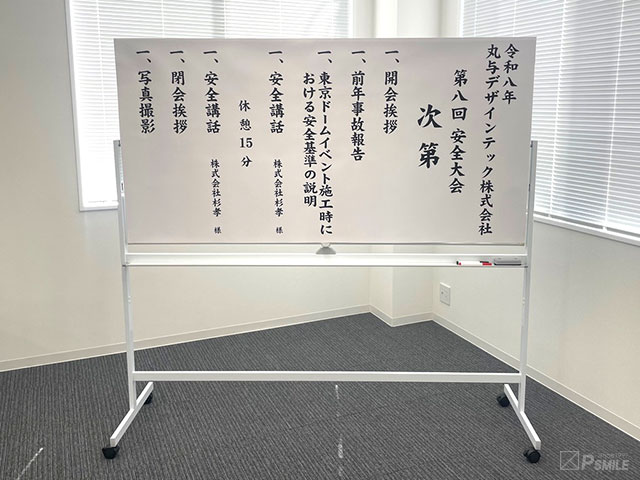 令和八年
丸与デザインテック株式会社
第八回 安全大会
次第
一、開会挨拶
一、前年事故報告
一、東京ドームイベント施工時に
おける安全基準の説明
一、安全講話 株式会社杉孝 様
休憩 15分
一、安全講話 株式会社杉孝 様
一、閉会挨拶
一、写真撮影
PSMILE